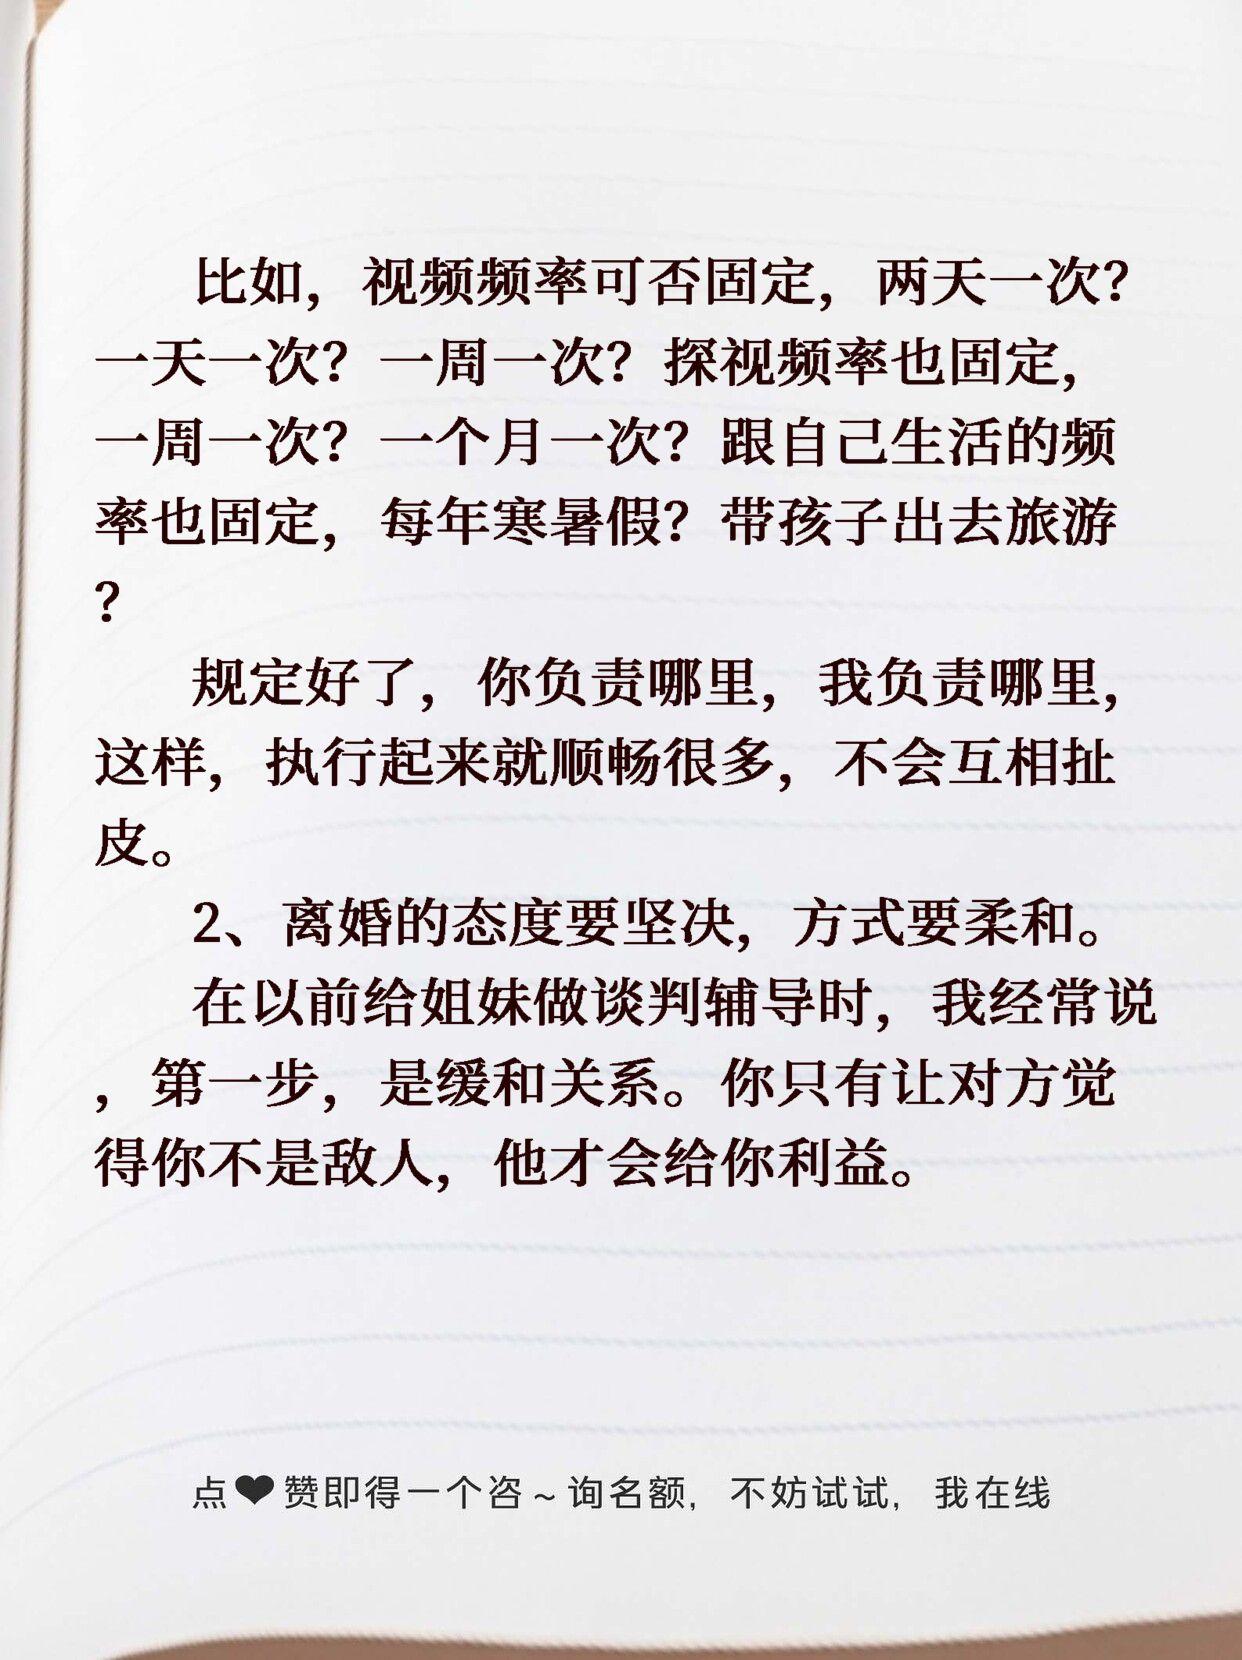 比如，视频频率可否固定，两天一次？
一天一次？一周一次？探视频率也固定，
一周一次？一个月一次？跟自己生活的频
率也固定，每年寒暑假？带孩子出去旅游
？
规定好了，你负责哪里，我负责哪里，
这样，执行起来就顺畅很多，不会互相扯
皮。
2、离婚的态度要坚决，方式要柔和。
在以前给姐妹做谈判辅导时，我经常说
，第一步，是缓和关系。你只有让对方觉
得你不是敌人，他才会给你利益。
点❤赞即得一个咨～询名额，不妨试试，我在线